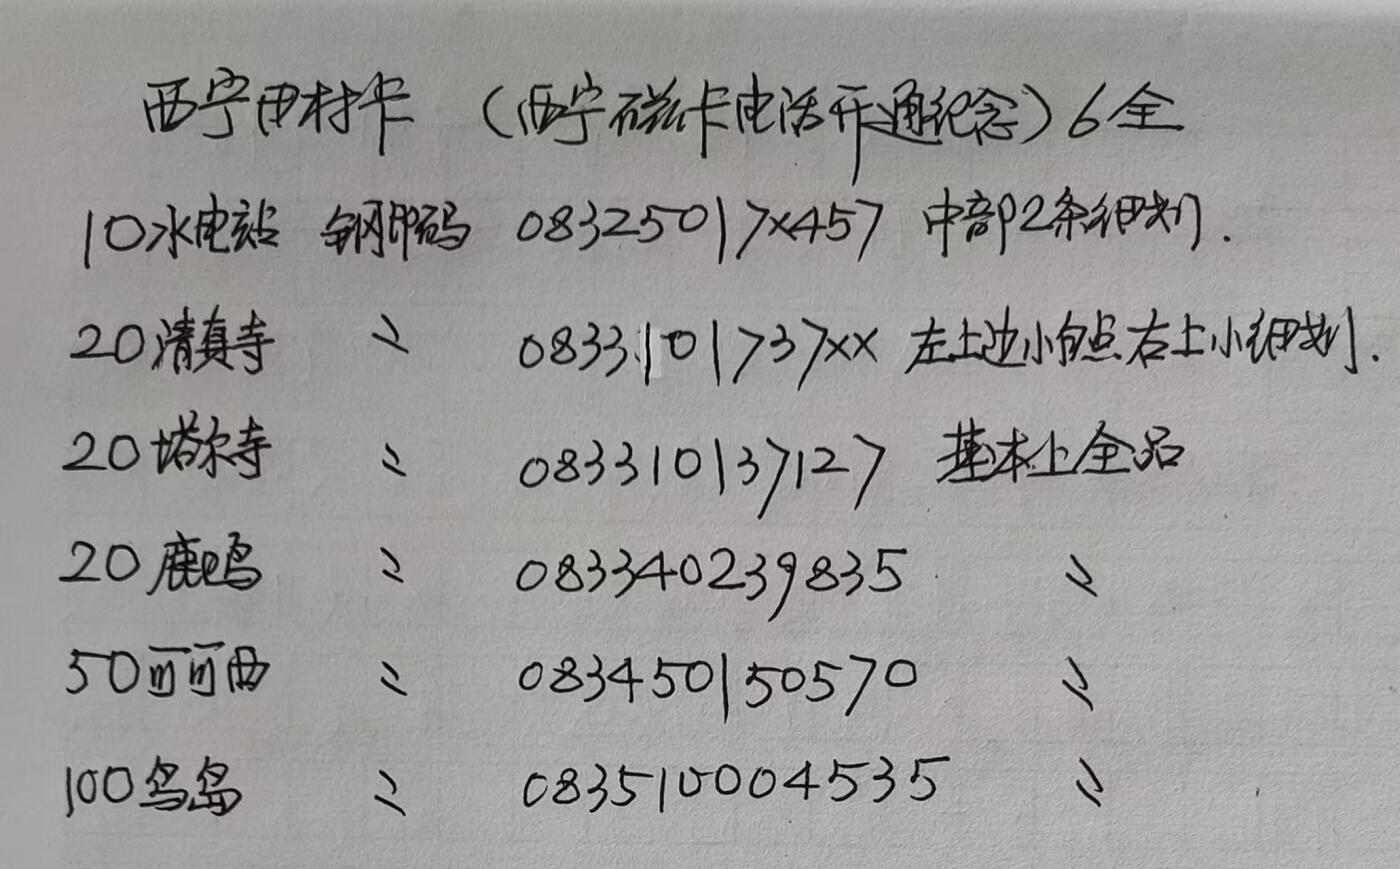 西宁田村卡 (西宁磁卡电话开通纪念) 6全
10水电站 钢印码 08325017××457 中部2条细划.
20清真寺 〃 0833101737×× 左上边小白点右上小细划.
20塔尔寺 〃 083310137127 基本上全品
20鹿鸣 〃 083340239835 〃
50可可西 〃 083450150570 〃
100鸟岛 〃 083510004535 〃